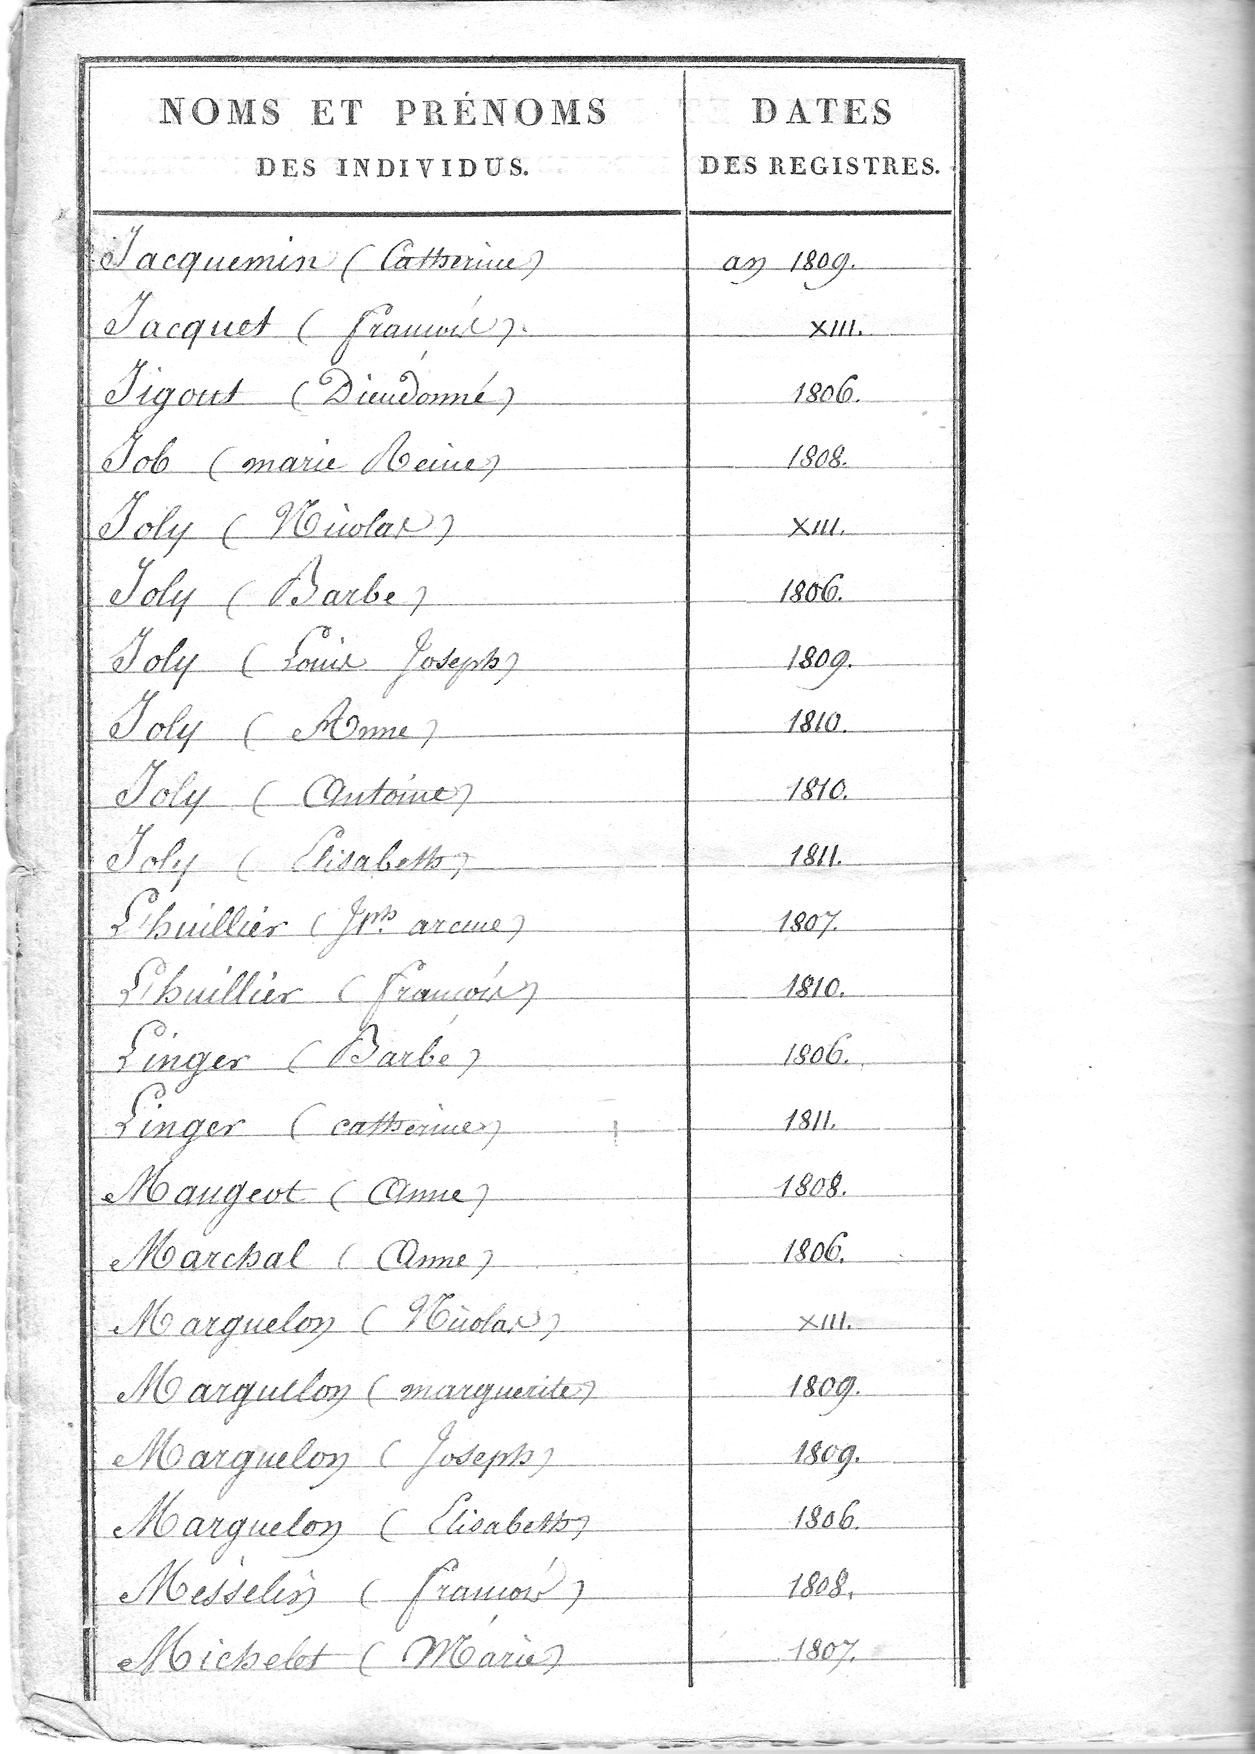 NOMS ET PRÉNOMS DATES
DES INDIVIDUS. DES REGISTRES.
Jacquemin (Catherine) an 1809.
Jacquet (françois). XIII.
Jigout (Dieudonné) 1806.
Job (marie Reine) 1808.
Joly (Nicolas) XIII.
Joly (Barbe) 1806.
Joly (Louis Joseph) 1809.
Joly (Anne) 1810.
Joly (Antoine) 1810.
Joly (Elisabeth) 1811.
L'huillier (Jph. arcene) 1807.
L'huillier (françois) 1810.
Linger (Barbe) 1806.
Linger (catherine) 1811.
Maugeot (Anne) 1808.
Marchal (Anne) 1806.
Marguelon (Nicolas) XIII.
Marguelon (marguerite) 1809.
Marguelon (Joseph) 1809.
Marguelon (Elisabeth) 1806.
Messelin (françois) 1808.
Michelot (Marie) 1807.